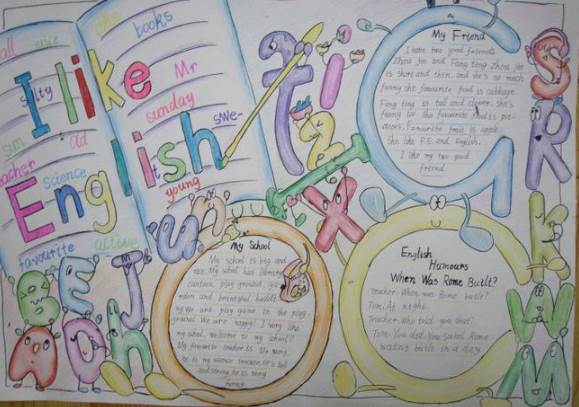 all
nice
she
books
I like
salty
Mr
sunday
sun
old
swe-
English
teacher
science
young
favourite
active
My Friend
I have two good friends
Zhou Jie and Fang ting Zhou Jie
is short and thin. and she's so much
funny. she favourite food is cabbage.
Fang ting is tall and clever. she's
funny too. She favourite food is
Favourite food is apple
She like P.E. and English.
I like my two good
friend.
My School
My school is big and
nice. My school has library
canteen, play ground, ga-
rden and beautiful
ng We are play game in the play-
ground. We are happy! I very like
my school. welcome to my school!!
My favourite teacher is
he is my science teacher. He's tall
and strong. he is very
funny.
English
Humours
When Was Rome Built?
Teacher: When was Rome built?
Tom: At night.
Teacher: Who told you that?
Tom: You did. You said Rome
wasn't built in a day.
f
i
z
x
G
S
R
k
W
M
u
a
B
E
J
A
O
h